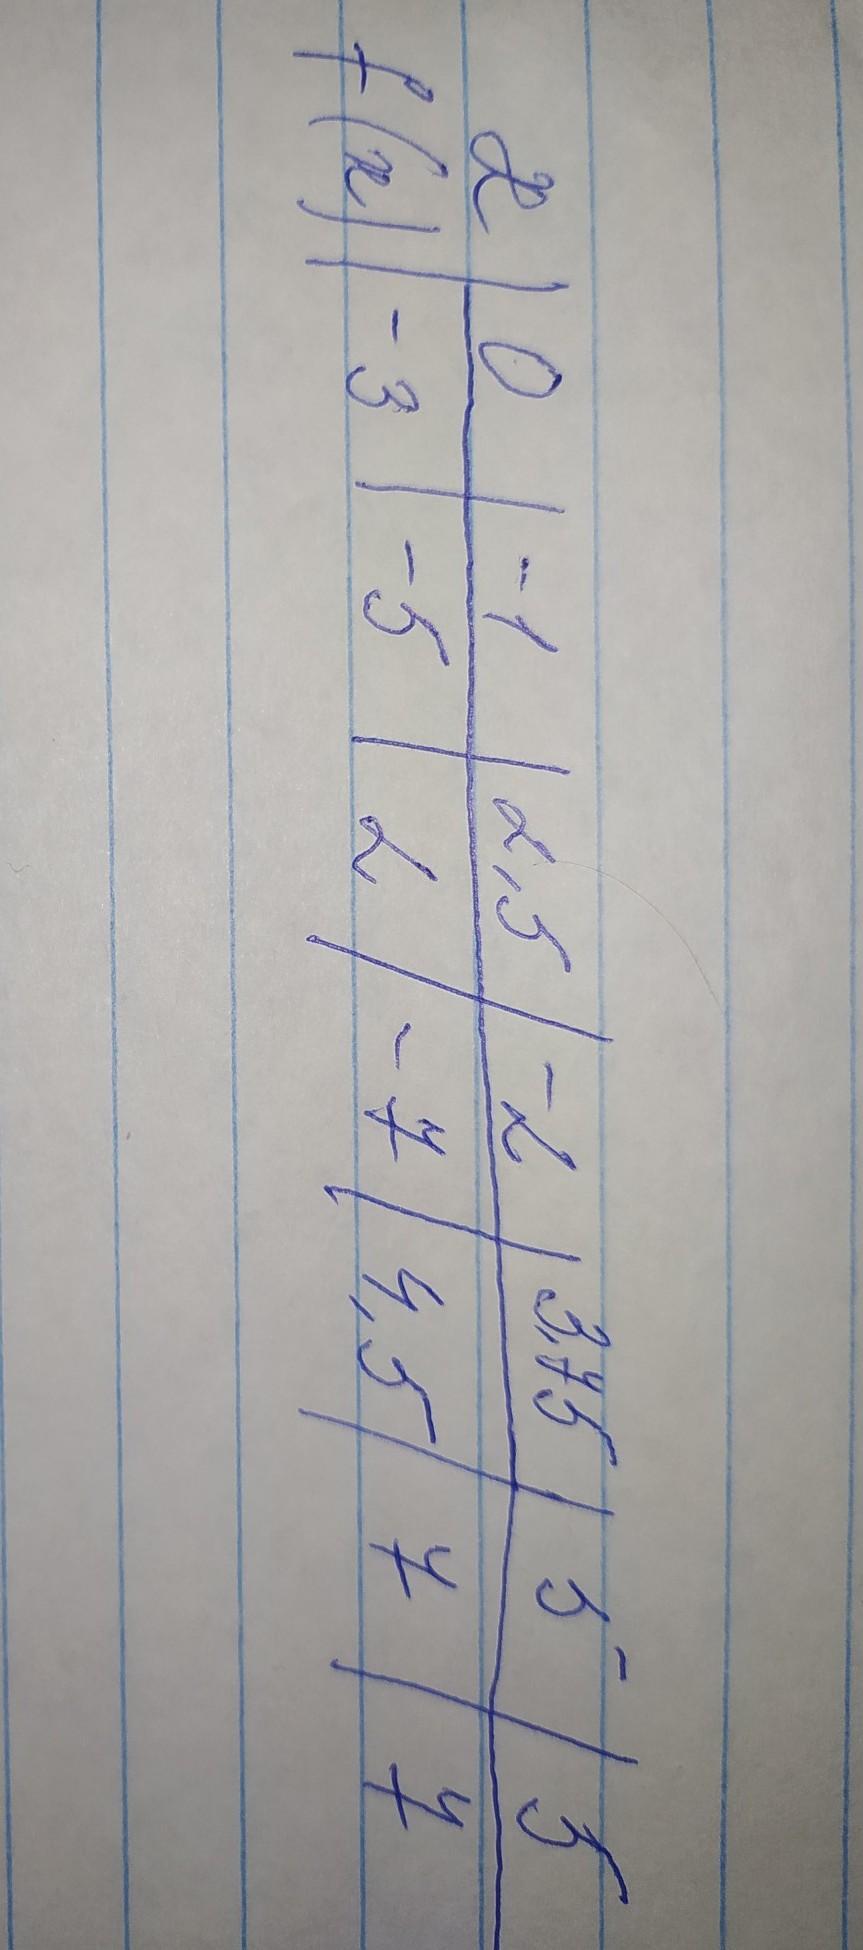 x | 0 | -1 | 2,5 | -2 | 3,75 | 5 | 5
f(x) | -3 | -5 | 2 | -7 | 4,5 | 7 | 7